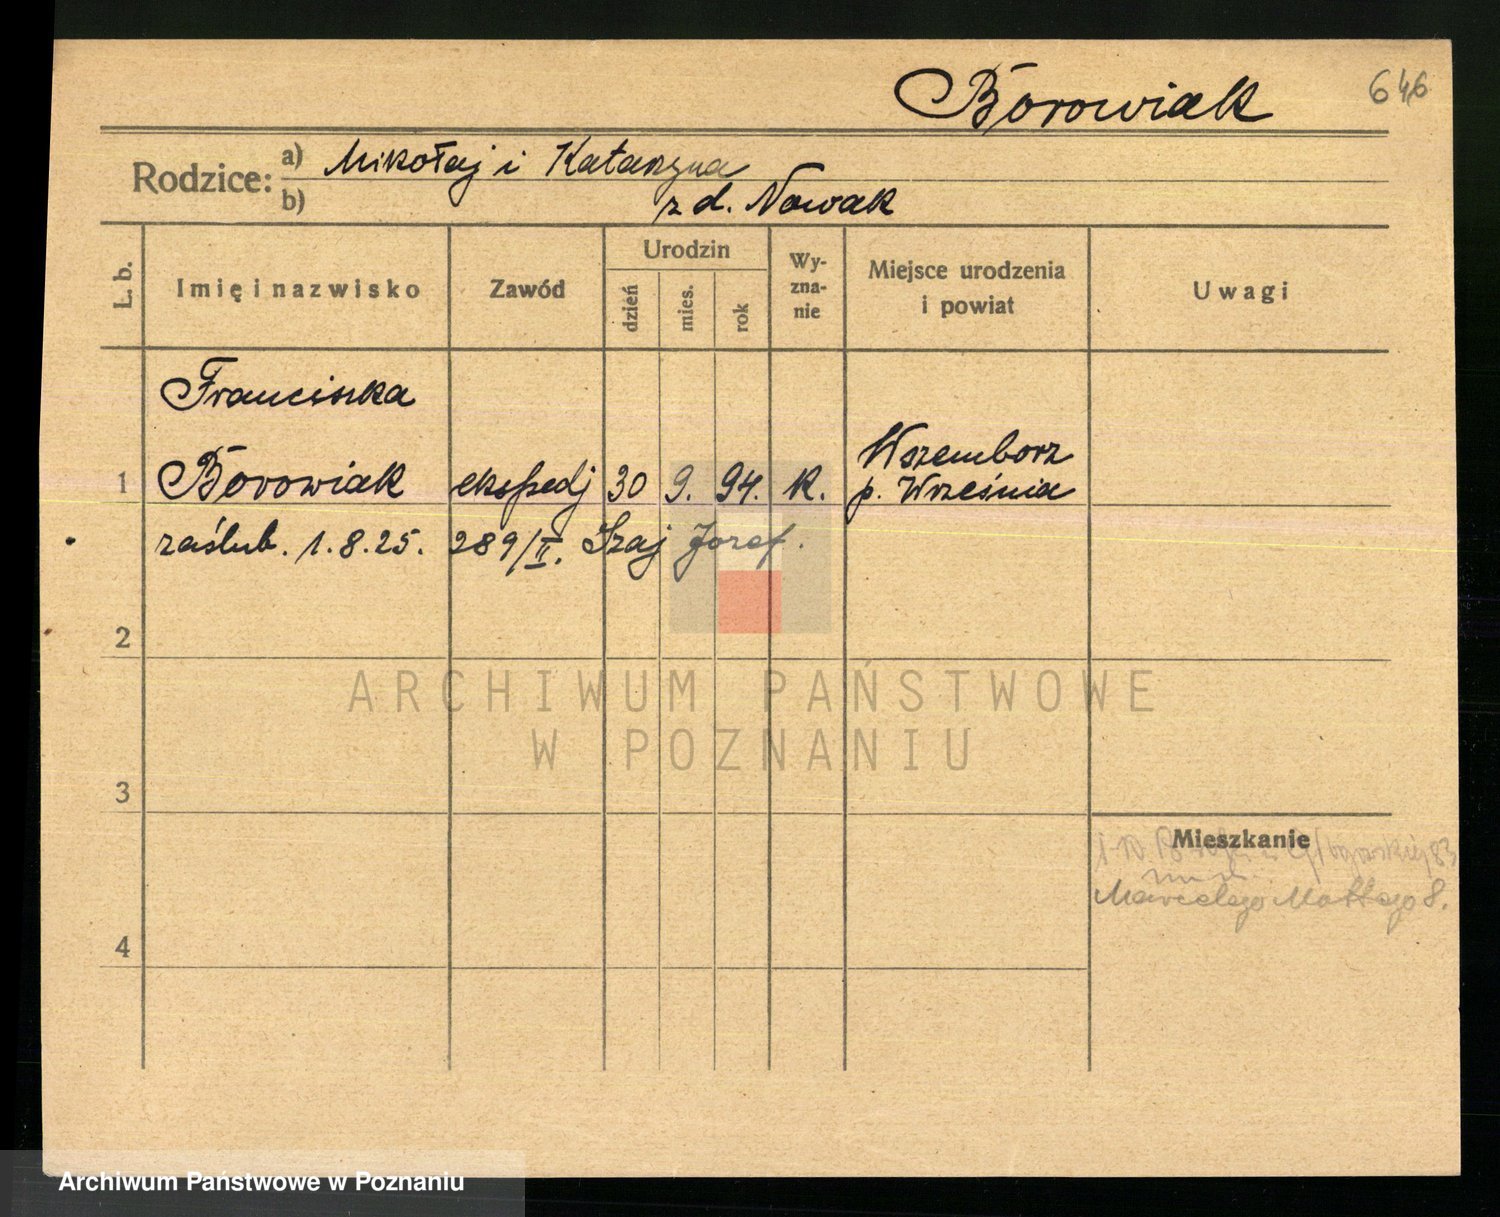 Borowiak
646
Rodzice: a) Mikołaj i Katarzyna
b) z d. Nowak
L. b.
Imię i nazwisko
Zawód
Urodzin
dzień
mies.
rok
Wy-
zna-
nie
Miejsce urodzenia
i powiat
Uwagi
Franciszka
1 Borowiak ekspedj 30 9. 94. K. Wszemborz
p. Września
zaślub. 1.8.25. 289/II. Szaj Józef.
2
3
4
Mieszkanie
83
Marcelego Mottego 8.
ARCHIWUM PAŃSTWOWE
W POZNANIU
Archiwum Państwowe w Poznaniu